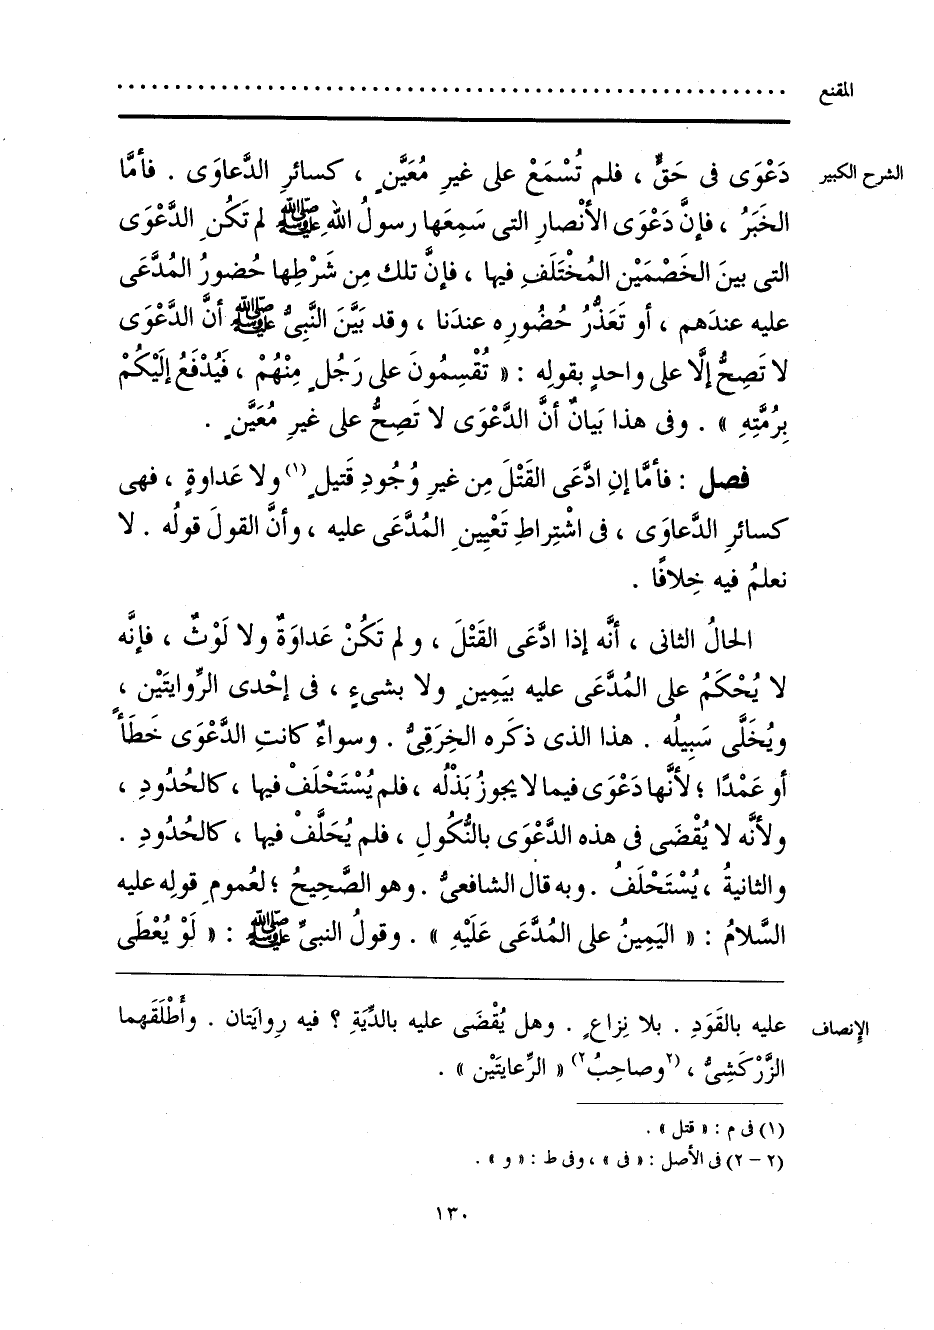 المقنع ........................................................
الشرح الكبير دَعْوَى فى حَقٍّ ، فلم تُسْمَعْ على غيرِ مُعَيَّنٍ ، كسائرِ الدَّعاوَى . فأمَّا
الخَبَرُ ، فإنَّ دَعْوَى الأنْصارِ التى سَمِعَها رسولُ اللهِ ﷺ لم تَكُنِ الدَّعْوَى
التى بينَ الخَصْمَيْن المُخْتَلَفِ فيها ، فإنَّ تلك مِن شَرْطِها حُضورُ المُدَّعَى
عليه عندَهم ، أو تَعَذُّرُ حُضُورِه عندَنا ، وقد بَيَّنَ النَّبِىُّ ﷺ أنَّ الدَّعْوَى
لا تَصِحُّ إلَّا على واحدٍ بقولِه : « تُقْسِمُونَ على رَجُلٍ مِنْهُمْ ، فَيُدْفَعُ إلَيْكُمْ
بِرُمَّتِهِ » . وفى هذا بَيانٌ أنَّ الدَّعْوَى لا تَصِحُّ على غيرِ مُعَيَّنٍ .
فصل : فأمَّا إنِ ادَّعَى القَتْلَ مِن غيرِ وُجُودِ قَتيلٍ(١) ولا عَداوةٍ ، فهى
كسائرِ الدَّعاوَى ، فى اشْتِراطِ تَعْيِينِ المُدَّعَى عليه ، وأنَّ القولَ قولُه . لا
نعلمُ فيه خِلافًا .
الحالُ الثانى ، أنَّه إذا ادَّعَى القَتْلَ ، ولم تَكُنْ عَداوَةٌ ولا لَوْثٌ ، فإنَّه
لا يُحْكَمُ على المُدَّعَى عليه بيَمِينٍ ولا بشىءٍ ، فى إحْدى الرِّوايتَيْن ،
ويُخَلَّى سَبِيلُه . هذا الذى ذكَره الخِرَقِىُّ . وسواءٌ كانتِ الدَّعْوَى خَطَأً
أو عَمْدًا ؛ لأنَّها دَعْوَى فيما لا يجوزُ بَذْلُه ، فلم يُسْتَحْلَفْ فيها ، كالحُدُودِ ،
ولأنَّه لا يُقْضَى فى هذه الدَّعْوَى بالنُّكُولِ ، فلم يُحَلَّفْ فيها ، كالحُدُودِ .
والثانيةُ ، يُسْتَحْلَفُ . وبه قال الشافعىُّ . وهو الصَّحِيحُ ؛ لعُمومِ قولِه عليه
السَّلامُ : « اليَمِينُ على المُدَّعَى عَلَيْهِ » . وقولُ النبىِّ ﷺ : « لَوْ يُعْطَى
الإنصاف عليه بالقَوَدِ . بلا نِزاعٍ . وهل يُقْضَى عليه بالدِّيَةِ ؟ فيه رِوايَتان . وأَطْلَقَهما
الزَّرْكَشِىُّ ، (٢وصاحبُ٢) « الرِّعايتَيْن » .
(١) فى م : « قتل » .
(٢ – ٢) فى الأصل : « فى » ، وفى ط : « و » .
١٣٠